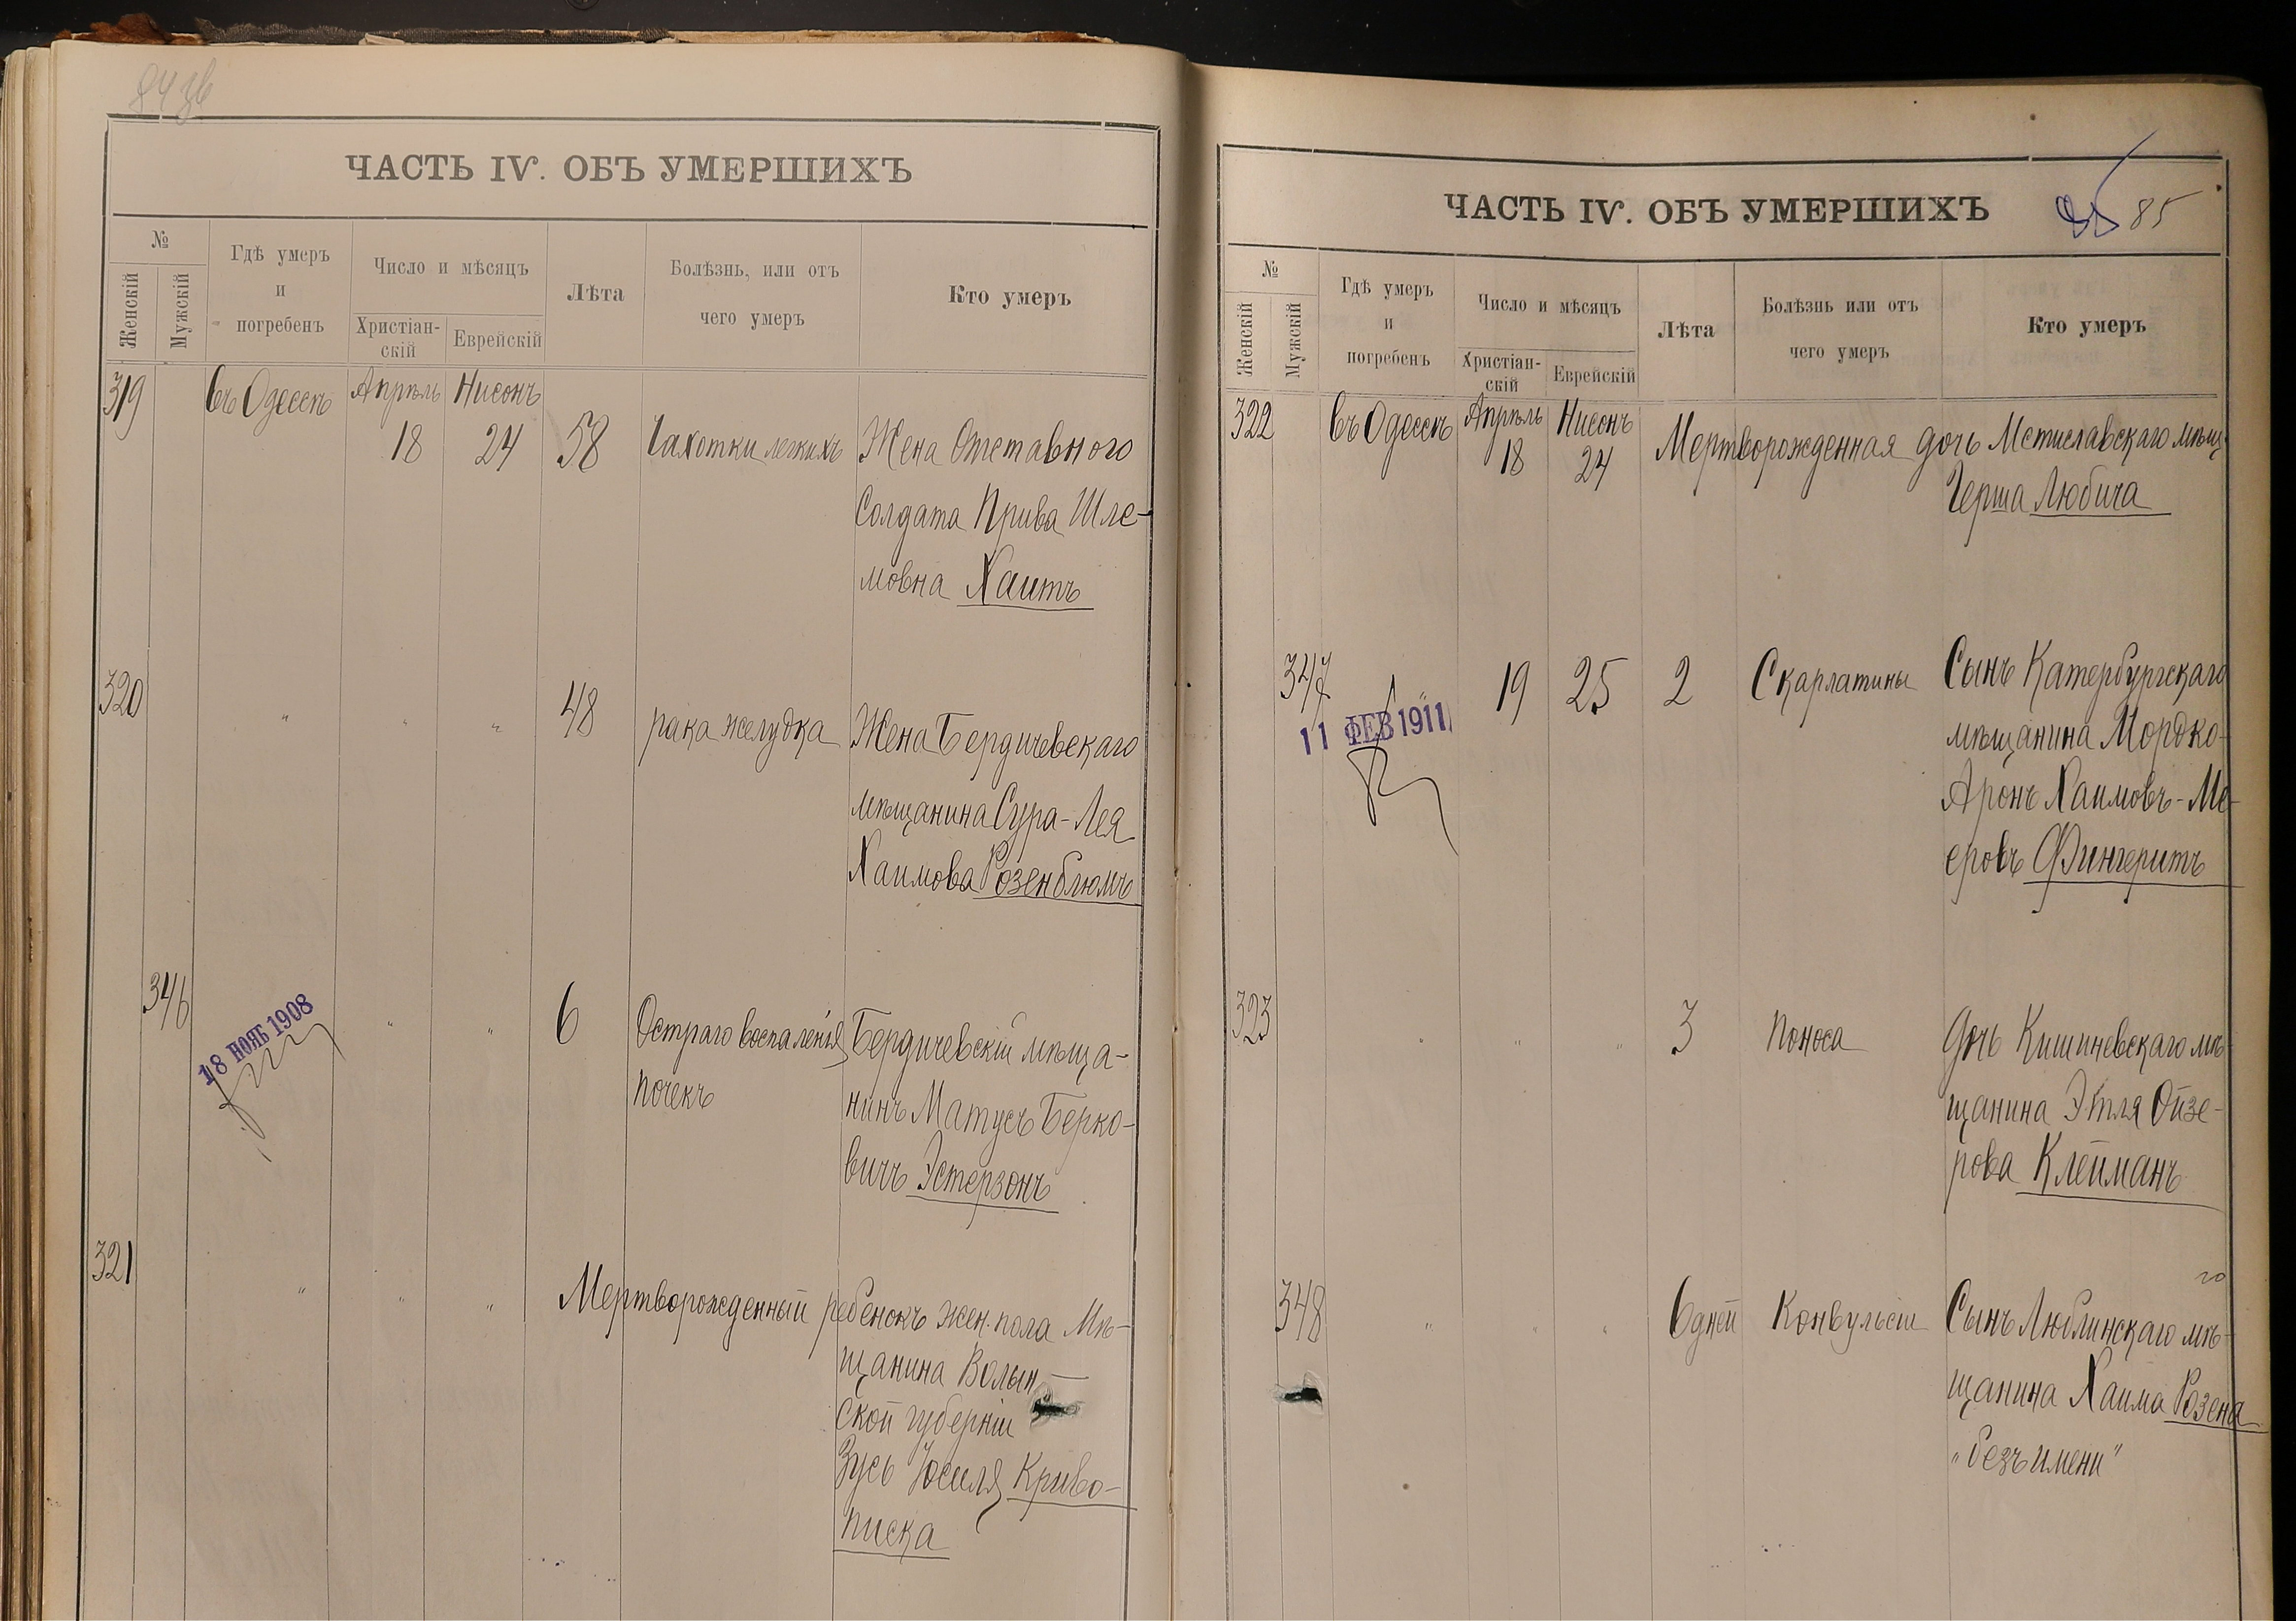 84 зв
ЧАСТЬ IV. ОБЪ УМЕРШИХЪ
№
Женскій
Мужскій
Гдѣ умеръ
и
погребенъ
Число и мѣсяцъ
Христіан-
скій
Еврейскій
Лѣта
Болѣзнь, или отъ
чего умеръ
Кто умеръ
319 въ Одессѣ Апрѣль Нисонъ
18 24 58 Чахотки легкихъ Жена Отставного
Солдата Прива Шле-
мовна Хаитъ
320 " " " 48 рака желудка Жена Бердичевскаго
мѣщанина Сура-Лея
Хаимова Розенблюмъ
346 " " 6 Остраго воспаленія Бердичевскій мѣща-
18 НОЯБ 1908
почекъ нинъ Матусъ Берко-
вичъ Эстерзонъ
321 " " " Мертворожденный ребенокъ жен. пола Мѣ-
щанина Волын-
ской губерніи
Зусь Іосиля Криво-
писка
ЧАСТЬ IV. ОБЪ УМЕРШИХЪ
85
№
Женскій
Мужскій
Гдѣ умеръ
и
погребенъ
Число и мѣсяцъ
Христіан-
скій
Еврейскій
Лѣта
Болѣзнь или отъ
чего умеръ
Кто умеръ
322 въ Одессѣ Апрѣль Нисонъ
18 24 Мертворожденная дочь Мстиславскаго мѣщ.
Герша Любича
347 " 19 25 2 Скарлатины Сынъ Катербургскаго
11 ФЕВ 1911
мѣщанина Мордко-
Аронъ Хаимовъ-Ме-
еровъ Фингеритъ
323 " " " 3 Поноса Дочь Кишиневскаго мѣ-
щанина Этля Ойзе-
рова Клейманъ
348 " " " 6 дней Конвульсіи Сынъ Люблинскаго мѣ-
щанина Хаима Розена
"безъ имени"